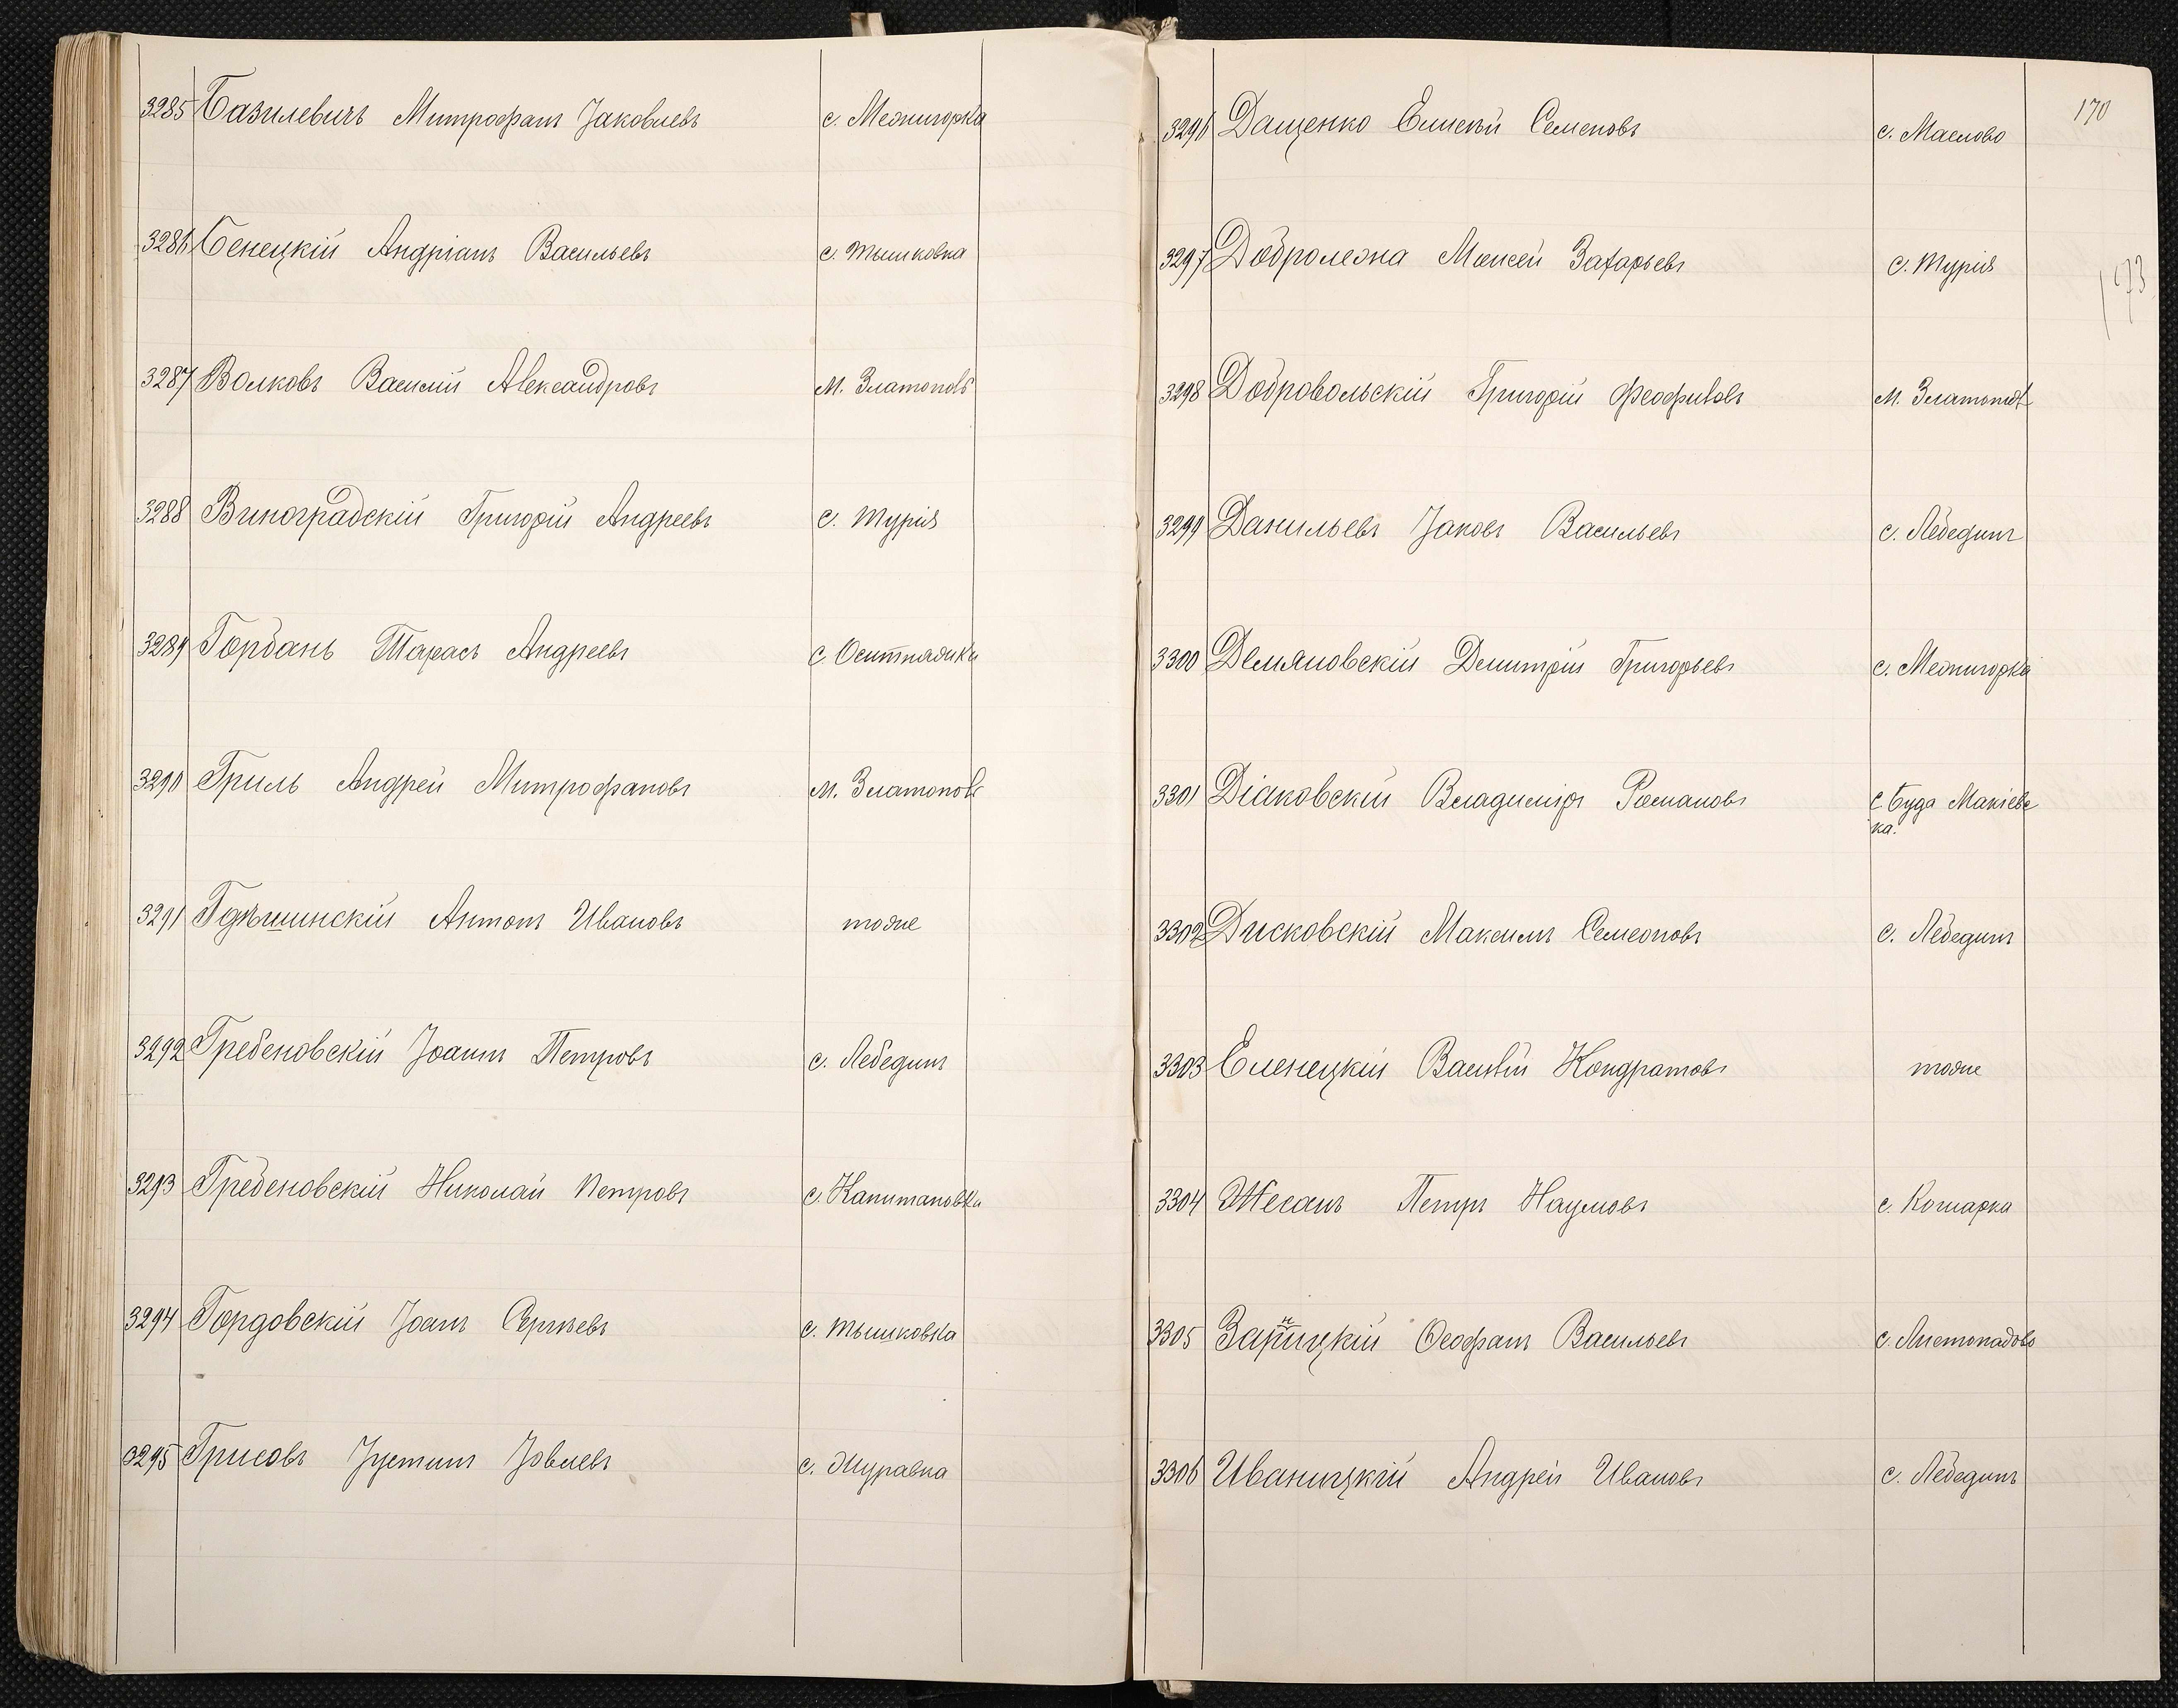 3285 Базилевичъ Митрофанъ Јаковлевъ с. Межигорка
3286 Бенецкій Андріанъ Васильевъ с. Тышковка
3287 Волковъ Василій Александровъ м. Златополь
3288 Виноградскій Григорій Андреевъ с. Турія
3289 Горбань Тарасъ Андреевъ с. Оситняжка
3290 Гриль Андрей Митрофановъ м. Златополь
3291 Антонъ Ивановъ тоже
3292 Гребеновскій Јоаннъ Петровъ с. Лебединъ
3293 Гребеновскій Николай Петровъ с. Капитановка
3294 Гордовскій Јоанъ Сергѣевъ с. Тышковка
3295 Грисовъ Јустинъ Јовлевъ с. Журавка
170
3296 Дащенко Елисѣй Семеновъ с. Маслово
3297 Добролежа Моисей Захарьевъ с. Турія
173
3298 Добровольскій Григорій Феофиловъ м. Златополь
3299 Данильевъ Јаковъ Васильевъ с. Лебединъ
3300 Демяновскій Димитрій Григорьевъ с. Межигорка
3301 Діаковскій Владиміръ Романовъ с. Буда Макіевс
ка.
3302 Дисковскій Максимъ Семеоновъ с. Лебединъ
3303 Еленецкій Василій Кондратовъ тоже
3304 Жеганъ Петръ Наумовъ с. Кошарка
3305 Зарицкій Ѳеофанъ Васильевъ с. Листопадово
3306 Иваницкій Андрей Ивановъ с. Лебединъ